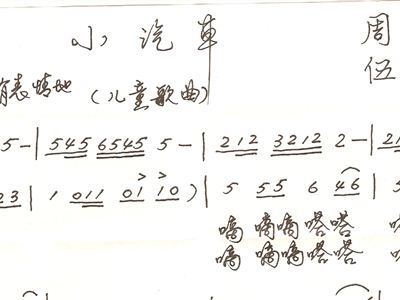 小汽車 周
伍
有表情地 (儿童歌曲)
5-| 545 6545 5-| 212 3212 2-| 21
23 | 1 011 01 10) | 5 55 6 46 | 5
嘀 嘀嘀 嗒嗒
嘀 嘀嘀 嗒嗒